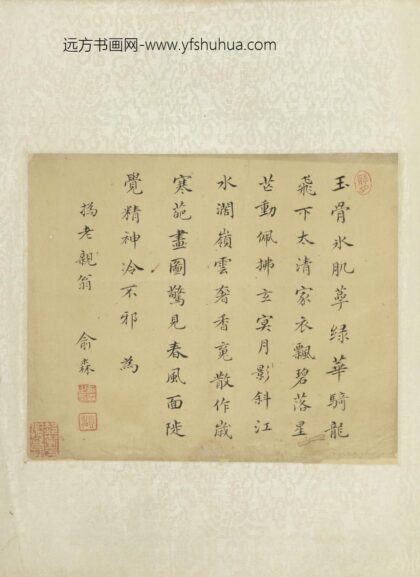 远方书画网-www.yfshuhua.com
玉骨氷肌萼绿華騎龍
飛下太清家衣飄碧落星
芒動佩拂玄冥月影斜江
水濶嶺雲奢香寛散作歳
寒葩畫圖驚見春風面陡
覺精神冷不邪 為
撝老親翁 俞森